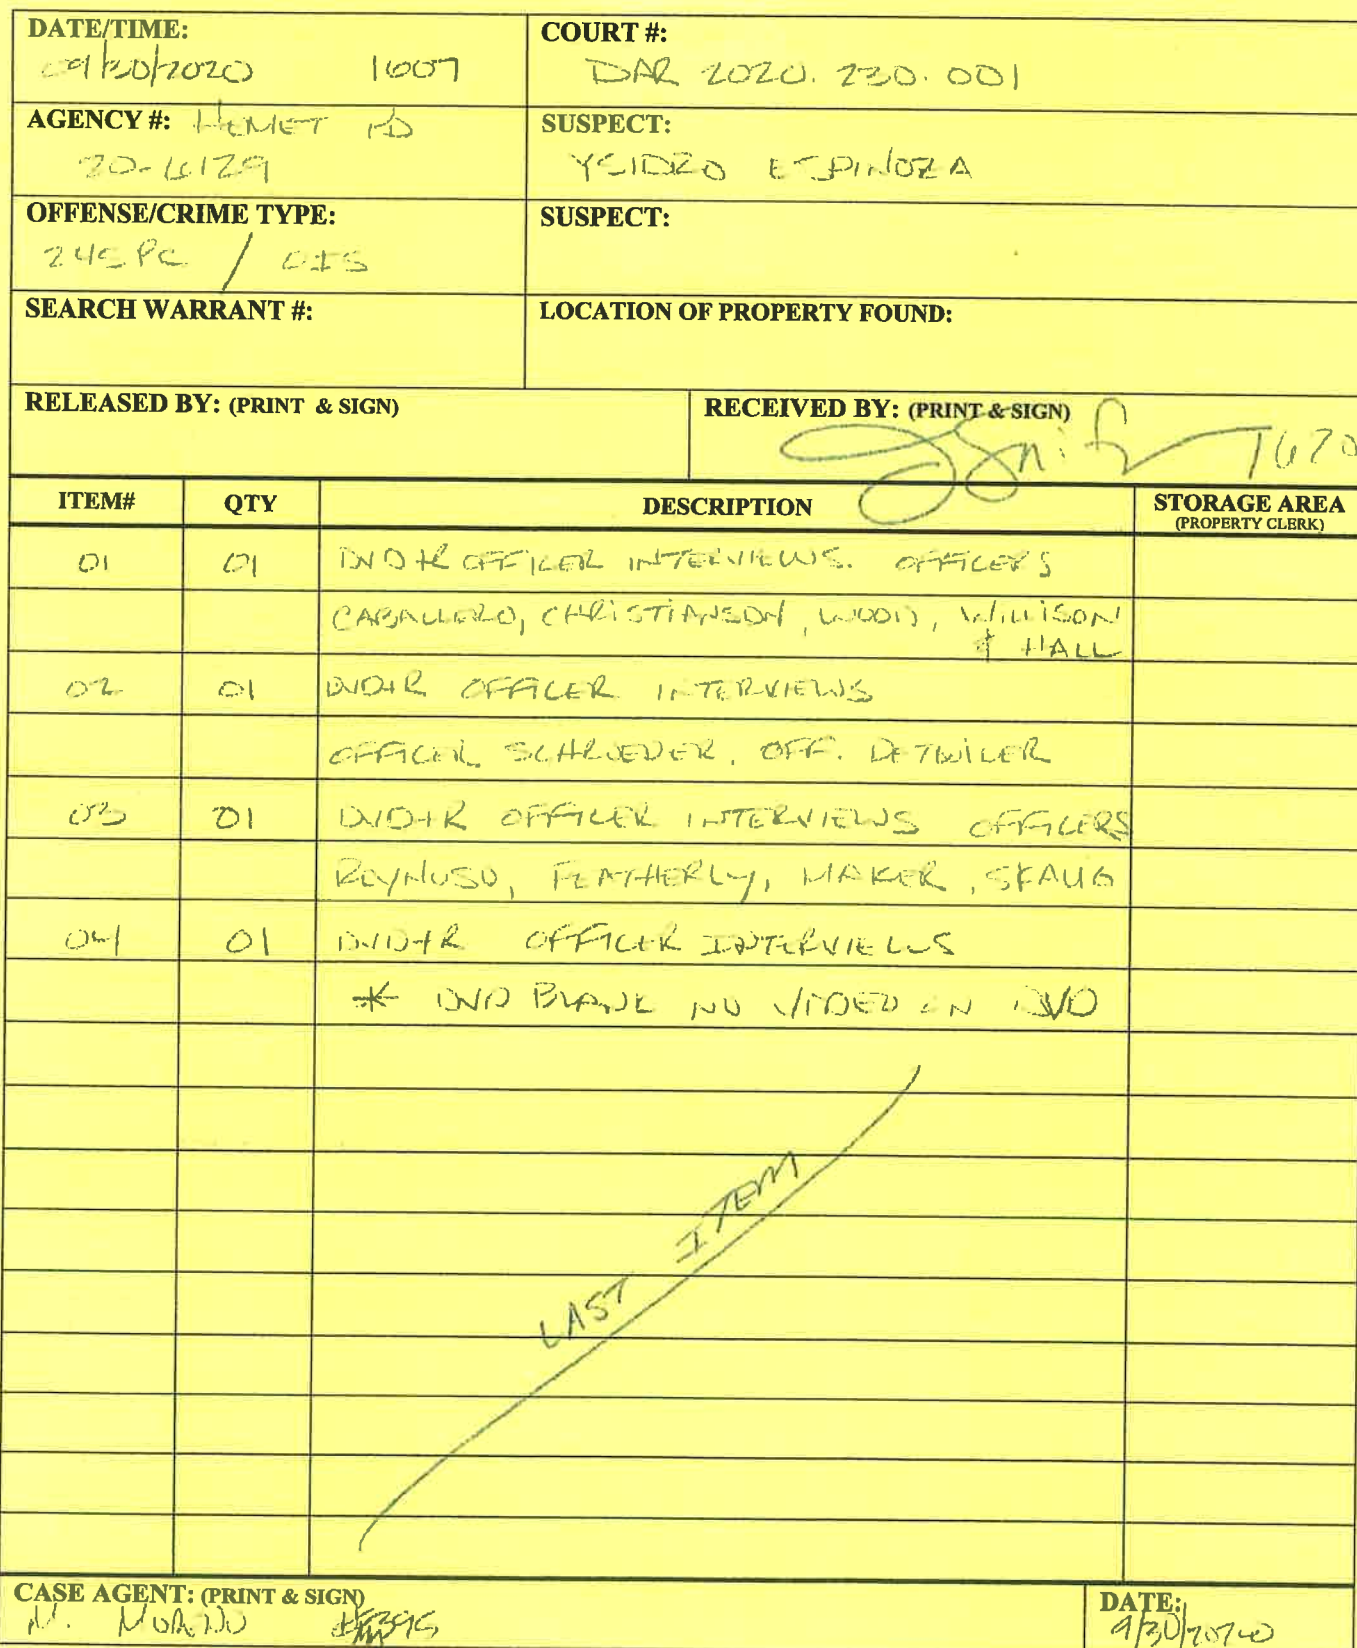 DATE/TIME:
09/30/2020 1607
COURT #:
DAR 2020.230.001
AGENCY #: HEMET PD
20-6129
SUSPECT:
YSIDRO ESPINOZA
OFFENSE/CRIME TYPE:
245 PC / OIS
SUSPECT:
SEARCH WARRANT #:
LOCATION OF PROPERTY FOUND:
RELEASED BY: (PRINT & SIGN)
RECEIVED BY: (PRINT & SIGN)
1620
ITEM# QTY DESCRIPTION STORAGE AREA
(PROPERTY CLERK)
01 01 DVD+R OFFICER INTERVIEWS. OFFICERS
CABALLERO, CHRISTIANSON, WOOD, WILLISON
& HALL
02 01 DVD+R OFFICER INTERVIEWS
OFFICER SCHROEDER, OFF. DETWILER
03 01 DVD+R OFFICER INTERVIEWS OFFICERS
REYNOSO, FEATHERLY, MAKER, SKAUG
04 01 DVD+R OFFICER INTERVIEWS
* DVD BLANK NO VIDEO ON DVD
LAST ITEM
CASE AGENT: (PRINT & SIGN)
N.
DATE:
9/30/2020